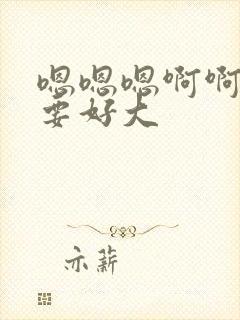 嗯嗯嗯啊啊
要好大
亦薪